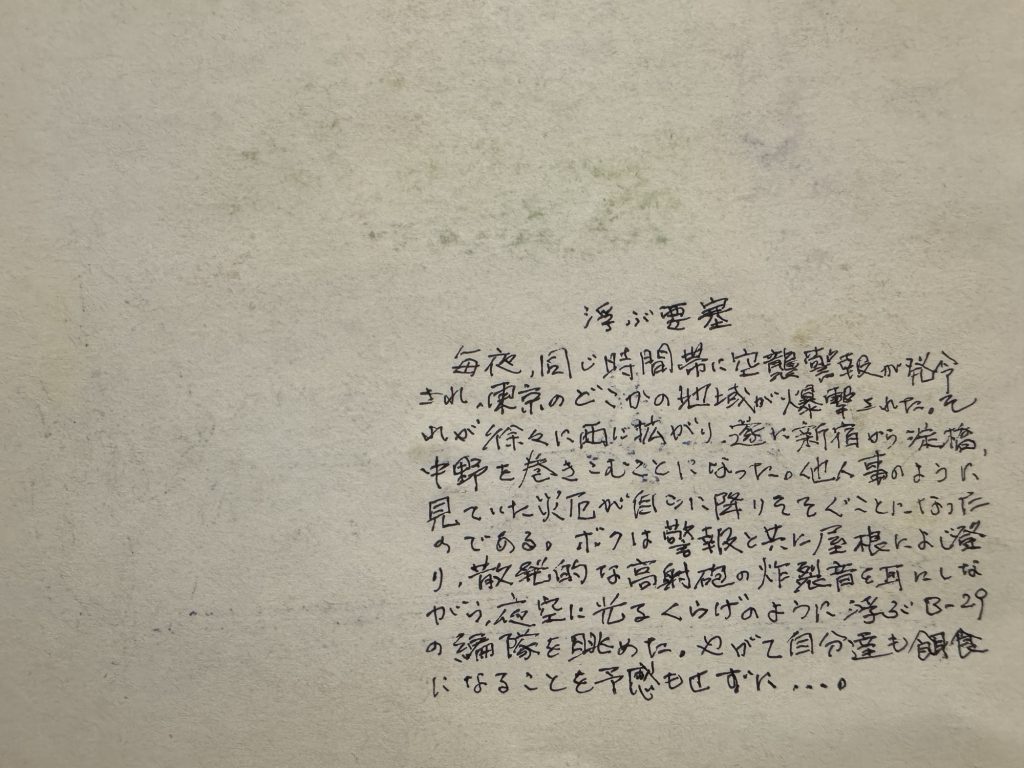 浮ぶ要塞
毎夜、同じ時間帯に空襲警報が発令
され、東京のどこかの地域が爆撃された。そ
れが徐々に西に拡がり、遂に新宿から淀橋、
中野を巻きこむことになった。他人事のように
見ていた災厄が自己に降りそそぐことになった
のである。ボクは警報と共に屋根によじ登
り、散発的な高射砲の炸裂音を耳にしな
がら、夜空に光るくらげのように浮ぶB-29
の編隊を眺めた。やがて自分達も餌食
になることを予感もせずに....。